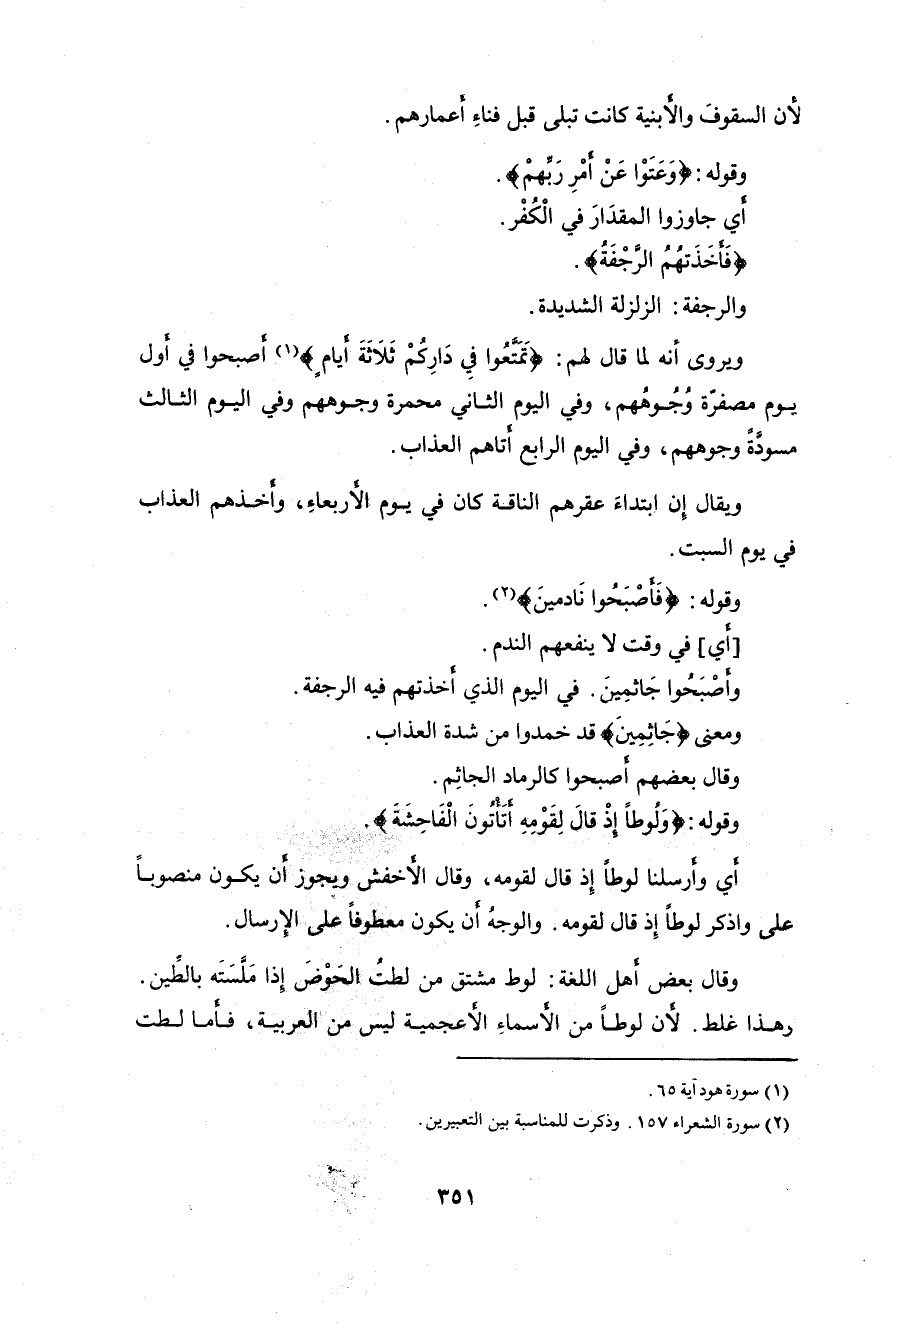 لأن السقوفَ والأَبنية كانت تبلى قبل فناءِ أَعمارهم.
وقوله: ﴿وَعَتَوْا عَنْ أَمْرِ رَبِّهِمْ﴾.
أَي جاوزوا المقدَارَ في الْكُفْر.
﴿فَأَخَذَتهُمُ الرَّجْفَةُ﴾.
والرجفة: الزلزلة الشديدة.
ويروى أَنه لما قال لهم: ﴿تَمَتَّعُوا فِي دَارِكُمْ ثَلَاثَةَ أَيامٍ﴾(١) أَصبحوا في أَول
يوم مصفرّة وُجُوهُهم، وفي اليوم الثاني محمرة وجوههم وفي اليوم الثالث
مسودَّةً وجوههم، وفي اليوم الرابع أَتاهم العذاب.
ويقال إِن ابتداءَ عقرهم الناقة كان في يوم الأَربعاءِ، وأَخذهم العذاب
في يوم السبت.
وقوله: ﴿فَأَصْبَحُوا نَادمينَ﴾(٢).
[أَي] في وقت لا ينفعهم الندم.
وأَصْبَحُوا جَاثمِينَ. في اليوم الذي أَخذتهم فيه الرجفة.
ومعنى ﴿جَاثِمِينَ﴾ قد خمدوا من شدة العذاب.
وقال بعضهم أَصبحوا كالرماد الجاثِم.
وقوله: ﴿وَلُوطاً إِذْ قالَ لِقَوْمِهِ أَتَأْتُونَ الْفَاحِشَةَ﴾.
أَي وأَرسلنا لوطاً إِذ قال لقومه، وقال الأَخفش ويجوز أَن يكون منصوباً
على واذكر لوطاً إِذ قال لقومه. والوجهُ أَن يكون معطوفاً على الإِرسال.
وقال بعض أَهل اللغة: لوط مشتق من لطتُ الحَوْضَ إِذا مَلَّسَتَه بالطِّين.
وهذا غلط. لأَن لوطاً من الأَسماءِ الأَعجمية ليس من العربية، فأَما لطت
(١) سورة هود آية ٦٥.
(٢) سورة الشعراء ١٥٧. وذكرت للمناسبة بين التعبيرين.
٣٥١